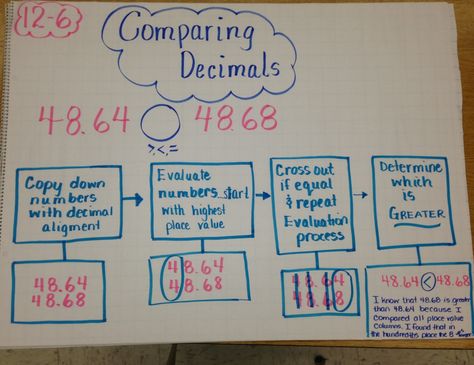 12-6
Comparing
Decimals
48.64 48.68
>,<,=
Copy down
numbers
with decimal
aligment
Evaluate
numbers...start
with highest
place value
Cross out
if equal
& repeat
Evaluation
process
Determine
which
is
GREATER
48.64
48.68
48.64
48.68
48.64
48.68
48.64 < 48.68
I know that 48.68 is greater
than 48.64 because I
compared all place value
columns. I found that in
the hundredths place the 8